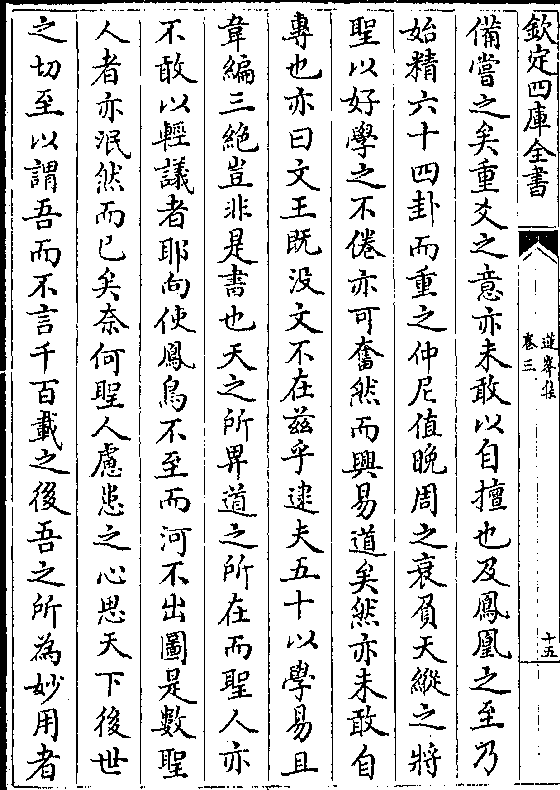 欽定四庫全書
蓮峯集
卷三
十五
備嘗之矣重爻之意亦未敢以自擅也及鳳凰之至乃
始精六十四卦而重之仲尼值晚周之衰負天縱之將
聖以好學之不倦亦可奮然而興易道矣然亦未敢自
專也亦曰文王既没文不在兹乎逮夫五十以學易且
韋編三絶豈非是書也天之所畀道之所在而聖人亦
不敢以輕議者耶向使鳳鳥不至而河不出圖是數聖
人者亦泯然而已矣奈何聖人慮患之心思天下後世
之切至以謂吾而不言千百載之後吾之所為妙用者